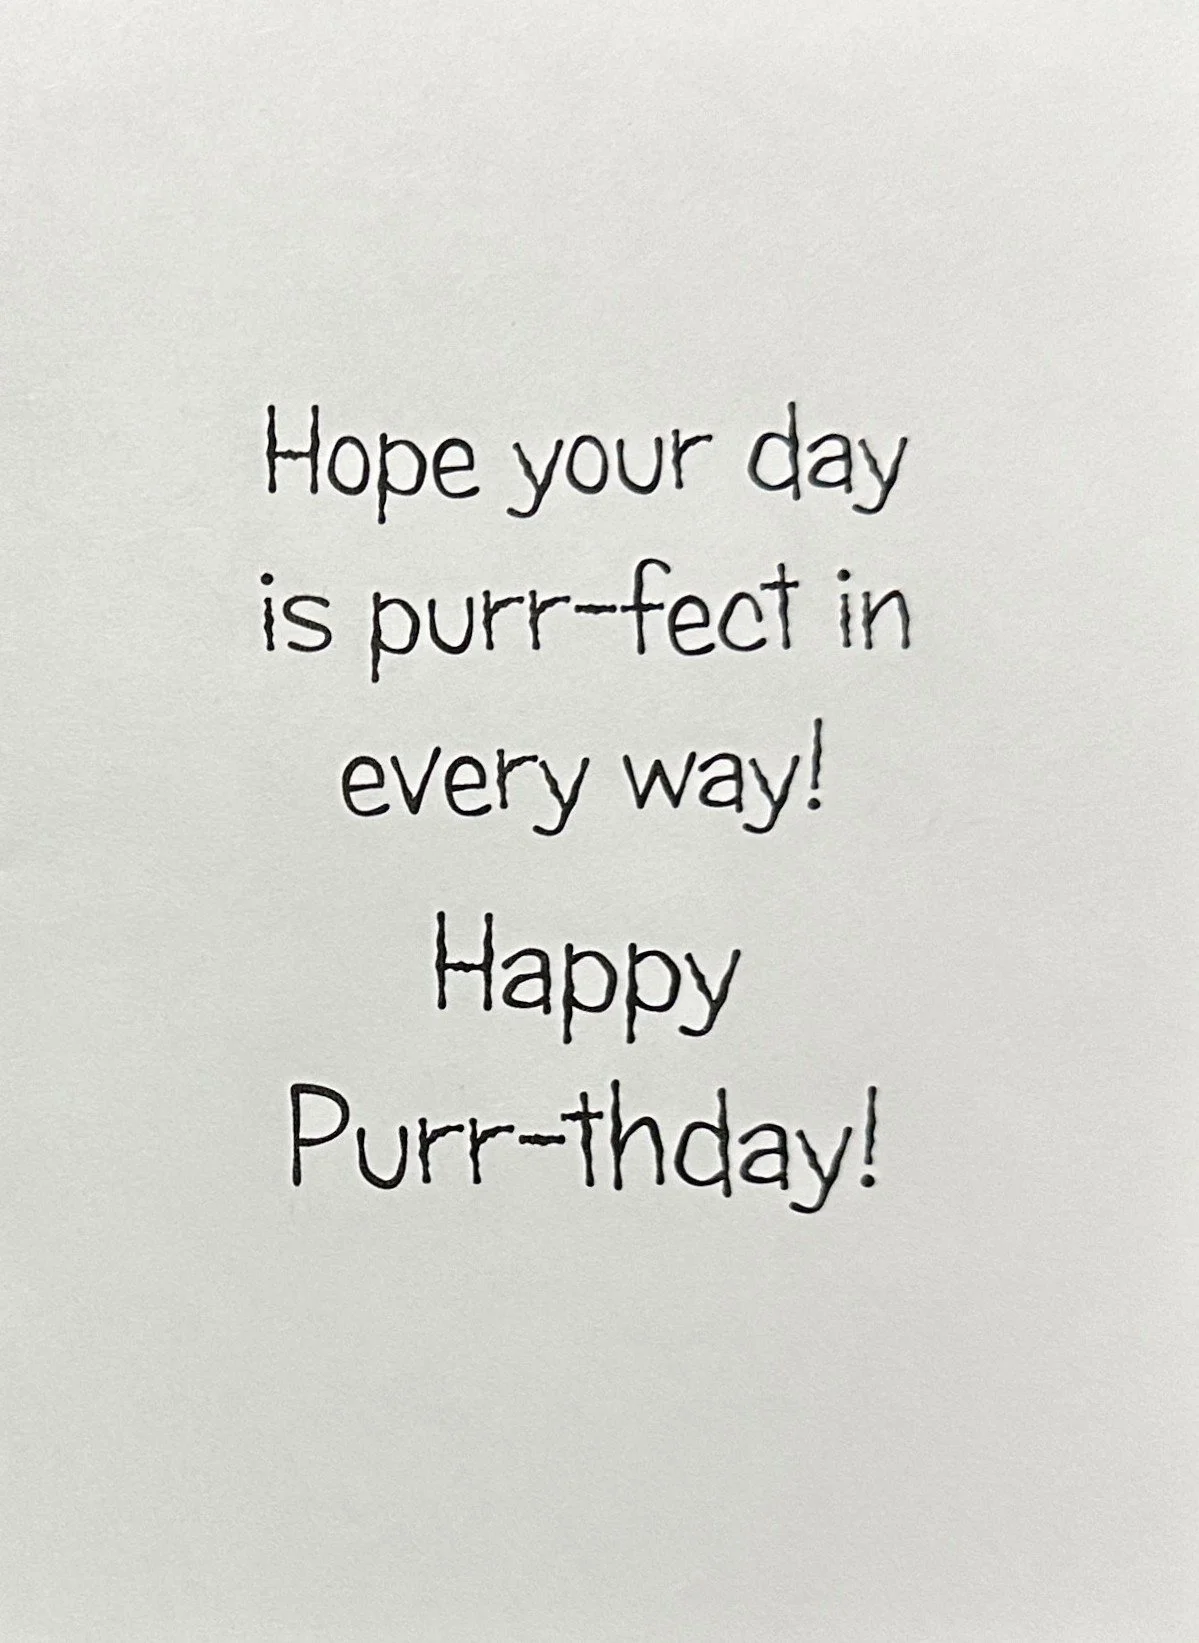 Hope your day
is purr-fect in
every way!
Happy
Purr-thday!